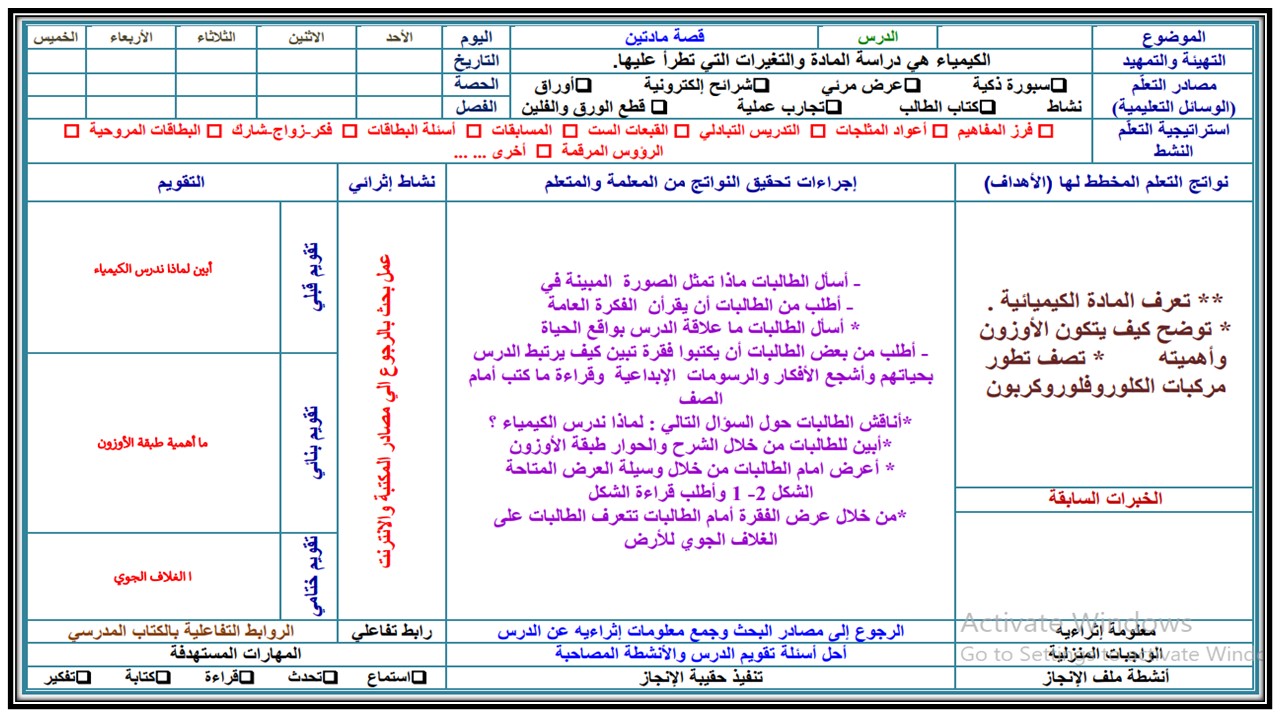 الموضوع الدرس قصة مادتين اليوم الأحد الاثنين الثلاثاء الأربعاء الخميس
التهيئة والتمهيد الكيمياء هي دراسة المادة والتغيرات التي تطرأ عليها. التاريخ
مصادر التعلّم ❑سبورة ذكية ❑عرض مرئي ❑شرائح إلكترونية ❑أوراق الحصة
(الوسائل التعليمية) نشاط ❑كتاب الطالب ❑تجارب عملية ❑ قطع الورق والفلين الفصل
استراتيجية التعلّم □ فرز المفاهيم □ أعواد المثلجات □ التدريس التبادلي □ القبعات الست □ المسابقات □ أسئلة البطاقات □ فكر-زواج-شارك □ البطاقات المروحية □
النشط الرؤوس المرقمة □ أخرى ... ...
نواتج التعلم المخطط لها (الأهداف) إجراءات تحقيق النواتج من المعلمة والمتعلم نشاط إثرائي التقويم
** تعرف المادة الكيميائية .
* توضح كيف يتكون الأوزون
وأهميته * تصف تطور
مركبات الكلوروفلوروكربون
الخبرات السابقة
- أسأل الطالبات ماذا تمثل الصورة المبينة في
- أطلب من الطالبات أن يقرأن الفكرة العامة
* أسأل الطالبات ما علاقة الدرس بواقع الحياة
- أطلب من بعض الطالبات أن يكتبوا فقرة تبين كيف يرتبط الدرس
بحياتهم وأشجع الأفكار والرسومات الإبداعية وقراءة ما كتب أمام
الصف
*أناقش الطالبات حول السؤال التالي : لماذا ندرس الكيمياء ؟
*أبين للطالبات من خلال الشرح والحوار طبقة الأوزون
* أعرض امام الطالبات من خلال وسيلة العرض المتاحة
الشكل 2- 1 وأطلب قراءة الشكل
*من خلال عرض الفقرة أمام الطالبات تتعرف الطالبات على
الغلاف الجوي للأرض
عمل بحث بالرجوع الي مصادر المكتبة والانترنت
تقويم قبلي
أبين لماذا ندرس الكيمياء
تقويم بنائي
ما أهمية طبقة الأوزون
تقويم ختامي
ا الغلاف الجوي
معلومة إثراءيه الرجوع إلى مصادر البحث وجمع معلومات إثراءيه عن الدرس رابط تفاعلي الروابط التفاعلية بالكتاب المدرسي
الواجبات المنزلية أحل أسئلة تقويم الدرس والأنشطة المصاحبة المهارات المستهدفة
أنشطة ملف الإنجاز تنفيذ حقيبة الإنجاز ❑استماع ❑تحدث ❑قراءة ❑كتابة ❑تفكير
Activate Windows
Go to Settings to activate Wind